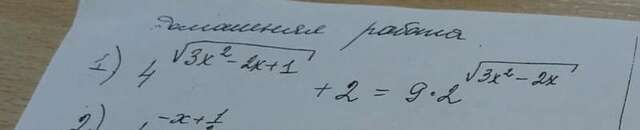 Домашняя работа.
1) 4^√(3x²-2x+1) + 2 = 9·2^√(3x²-2x)
2)